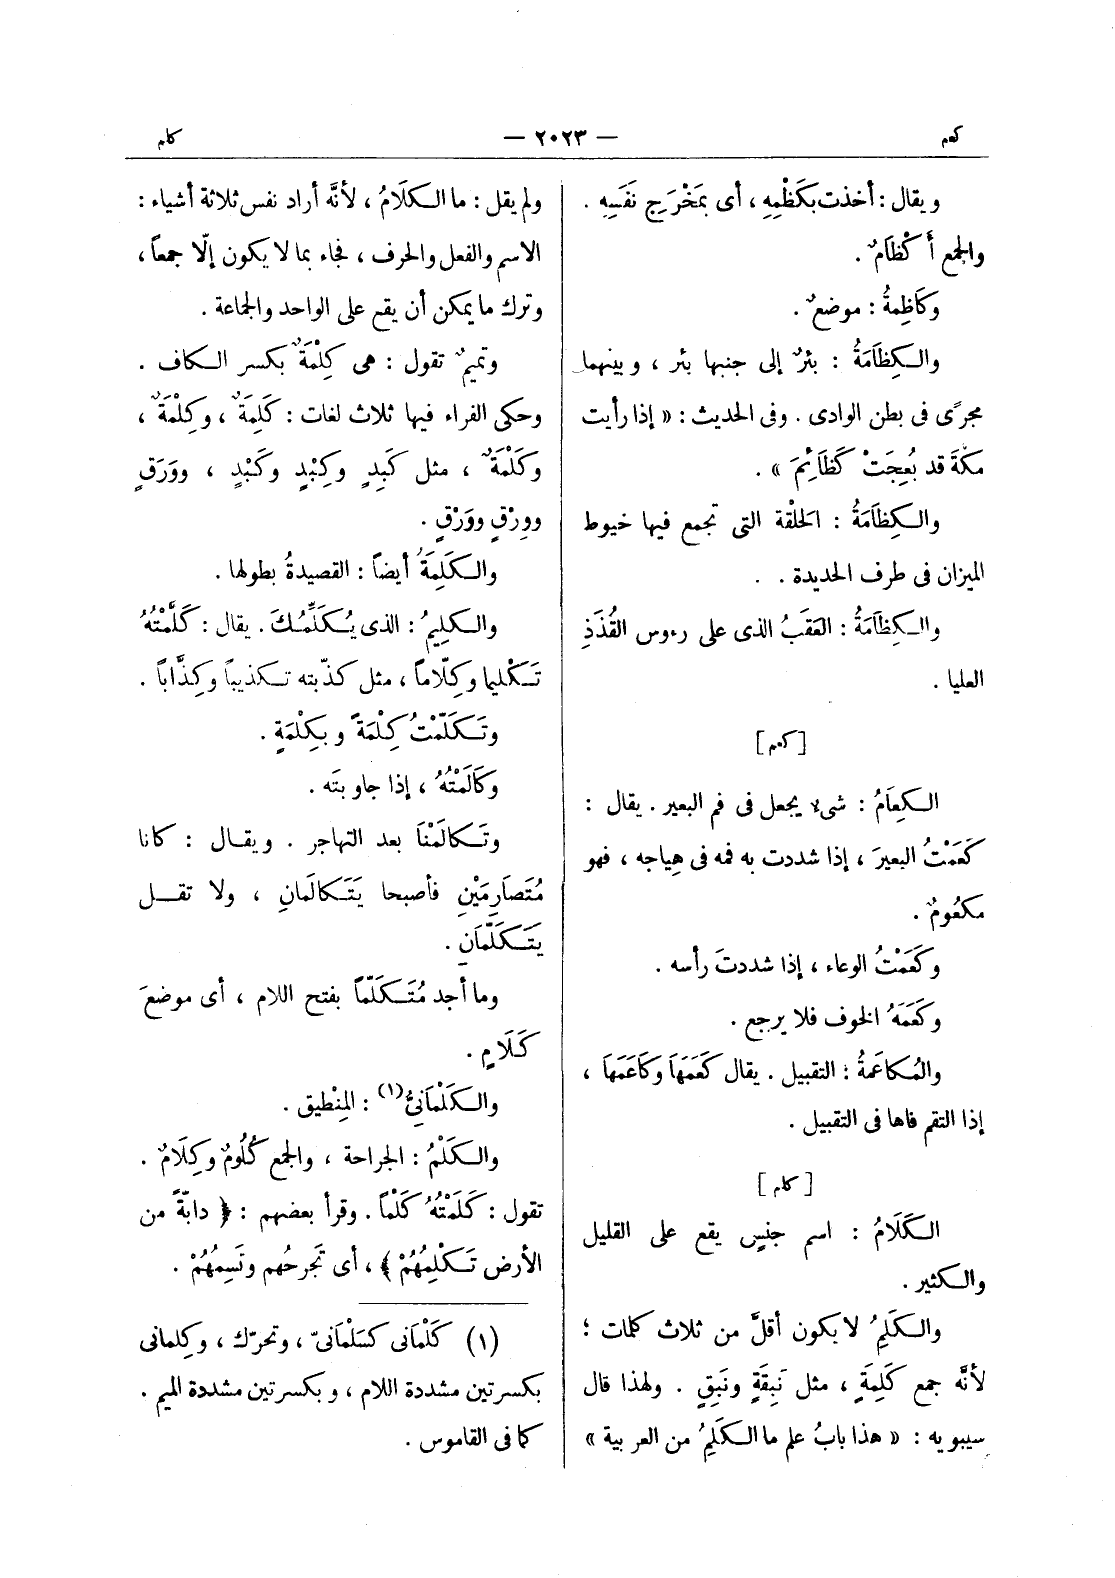 كعم
— ٢٠٢٣ —
كلم
ويقال : أخذت بكَظْمِهِ ، أى بمَخْرَجِ نَفَسِهِ .
والجمع أَكْظَامٌ .
وكَاظِمَةُ : موضعٌ .
والـكِظَامَةُ : بئرٌ إلى جنبها بئر ، وبينهما
مجرًى فى بطن الوادى . وفى الحديث : « إذا رأيت
مكّةَ قد بُعِجَتْ كَظَائِمَ » .
والـكِظَامَةُ : الحلْقة التى تجمع فيها خيوط
الميزان فى طرف الحديدة .
والـكِظَامَةُ : العَقَبُ الذى على رءوس القُذَذِ
العليا .
[كعم]
الـكِعَامُ : شىء يجعل فى فم البعير . يقال :
كَعَمْتُ البعيرَ ، إذا شددت به فمه فى هياجه ، فهو
مكعُومٌ .
وكَعَمْتُ الوعاء ، إذا شددتَ رأسه .
وكَعَمَهُ الخوف فلا يرجع .
والمُكاعَمةُ : التقبيل . يقال كَعَمَهَا وكَاعَمَهَا ،
إذا التقم فاها فى التقبيل .
[كلم]
الـكَلَامُ : اسم جنسٍ يقع على القليل
والـكثير .
والـكَلِمُ لا يكون أقلَّ من ثلاث كلمات ؛
لأنَّه جمع كَلِمَةٍ ، مثل نَبِقَةٍ ونَبِقٍ . ولهذا قال
سيبويه : « هذا بابُ علم ما الـكَلِمُ من العربية »
ولم يقل : ما الـكلَامُ ، لأنَّه أراد نفس ثلاثة أشياء :
الاسم والفعل والحرف ، فجاء بما لا يكون إلّا جمعاً ،
وترك ما يمكن أن يقع على الواحد والجماعة .
وتميمٌ تقول : هى كِلْمَةٌ بكسر الـكاف .
وحكى الفراء فيها ثلاث لغات : كَلِمَةٌ ، وكِلْمَةٌ ،
وكَلْمَةٌ ، مثل كَبِدٍ وكِبْدٍ وكَبْدٍ ، ووَرَقٍ
ووِرْقٍ ووَرْقٍ .
والـكَلِمَةُ أيضاً : القصيدةُ بطولها .
والـكلِيمُ : الذى يُـكَلِّمُـكَ . يقال : كَلَّمْتُهُ
تَـكْليما وكِلّاماً ، مثل كذّبته تـكذيباً وكِذَّاباً .
وتَـكَلَّمْتُ كِلْمَةً وبكِلْمَةٍ .
وكَالَمْتُهُ ، إذا جاوبتَه .
وتَـكالَمْنَا بعد التهاجر . ويقـال : كانا
مُتَصَارِمَيْنِ فأصبحا يَتَـكالَمَانِ ، ولا تقـل
يَتَـكَلَّمَانِ .
وما أجد مُتَـكَلَّماً بفتح اللام ، أى موضعَ
كَلَامٍ .
والـكَلْمَانِىُّ(١) : المِنْطيق .
والـكَلْمُ : الجراحة ، والجمع كُلُومٌ وكِلَامٌ .
تقول : كَلَمْتُهُ كَلْماً . وقرأ بعضهم : ﴿ دابّةً من
الأرض تَـكْلِمُهُمْ ﴾ ، أى تَجرحُهم وتَسِمُهُمْ .
(١) كَلْمَانى كسَلْمَانىّ ، وتحرّك ، وكِلِمانى
بكسرتين مشددة اللام ، وبكسرتين مشددة الميم .
كما فى القاموس .